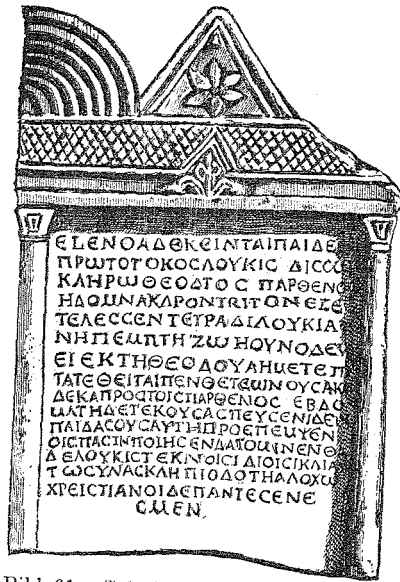 ΕLΕΝΟΑΔΕΚΕΙΝΤΑΙΠΑΙΔΕ
ΠΡΩΤΟΤΟΚΟCΛΟΥΚΙC ΔΙCCΟ
ΚΛΗΡΩΘΕΟΔΤΟC ΠΑΡΘΕΝΟ
ΗΔΟΜΝΑΚΔΡΟΝΤRΙΤΟΝΕΞΕ
ΤΕΛΕCCΕΝΤΕΤΡΑΔΙΛΟΥΚΙΑ
ΝΗΠΕΜΠΤΗΖΩΗΟΥΝΟΔΕΥ
ΕΙΕΚΤΗΘΕΟΔΟΥΛΗΜΕΤΕΠ
ΤΑΤΕΘΕΙΤΑΙΠΕΝΘΕΤΕΩΝΟΥCΑΚ
ΔΕΚΑΠΡΟCΤΟΙCΠΑΡΘΕΝΟC ΕΒΔΟ
ΜΑΤΗΔΕΤΕΚΟΥCΑCΠΕΥCΕΝΙΔΕΙ
ΠΑΙΔΑCΟΥCΑΥΤΗΠΡΟΕΠΕΜΨΕΝ
ΟΙCΠΑCΙΝΠΟΙΗCΕΝΔΑΤΟΜΝΕΝΘΑ
ΔΕΛΟΥΚΙCΤΕΚΙΝΟΙCΙΔΙΟΙCΙΚΛΙΑ
ΤΩCΥΝΑCΚΛΗΠΙΟΔΟΤΗΑΛΟΧΩ
ΧΡΕΙCΤΙΑΝΟΙΔΕΠΑΝΤΕCΕΝΕ
CΜΕΝ